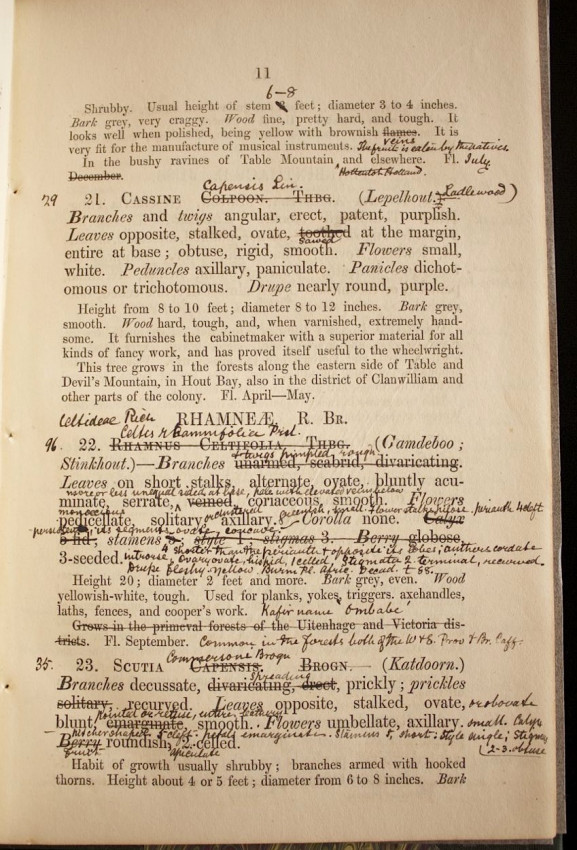 11
6-8
Shrubby. Usual height of stem feet; diameter 3 to 4 inches.
Bark grey, very craggy. Wood fine, pretty hard, and tough. It
looks well when polished, being yellow with brownish flames. It is
veins
very fit for the manufacture of musical instruments. The fruit is eaten by the natives.
In the bushy ravines of Table Mountain, and elsewhere. Fl. July
Hottentot Holland.
December.
Capensis Lin.
29 21. CASSINE COLPOON. THBG. (Lepelhout. Ladlewood)
Branches and twigs angular, erect, patent, purplish.
Leaves opposite, stalked, ovate, toothed at the margin,
sawed
entire at base; obtuse, rigid, smooth. Flowers small,
white. Peduncles axillary, paniculate. Panicles dichot-
omous or trichotomous. Drupe nearly round, purple.
Height from 8 to 10 feet; diameter 8 to 12 inches. Bark grey,
smooth. Wood hard, tough, and, when varnished, extremely hand-
some. It furnishes the cabinetmaker with a superior material for all
kinds of fancy work, and has proved itself useful to the wheelwright.
This tree grows in the forests along the eastern side of Table and
Devil's Mountain, in Hout Bay, also in the district of Clanwilliam and
other parts of the colony. Fl. April—May.
Celtideae Rich RHAMNEÆ, R. BR.
Celtis rhamnifolia Presl.
96. 22. RHAMNUS CELTIFOLIA, THBG. (Gamdeboo;
twigs pimpled, rough,
Stinkhout.)—Branches unarmed, scabrid, divaricating.
Leaves on short stalks, alternate, ovate, bluntly acu-
more or less unequal sided at base, pale with elevated veins below
minate, serrate, veined, coriaceous, smooth. Flowers
monoecious or clustered greenish, small, flower stalks pilose. perianth 4 cleft
pedicellate, solitary axillary. Corolla none. Calyx
its segments ovate concave
5 fid, stamens 5, style 1; stigmas 3. Berry globose,
4 shorter than the perianth & opposite its lobes; anthers cordate
3-seeded. introse, ovary ovate, hispid, 1 celled, Stigmata 2 terminal, recurved
Drupe fleshy yellow Burm Pl. Afric. Decad. t 88.
Height 20; diameter 2 feet and more. Bark grey, even. Wood
yellowish-white, tough. Used for planks, yokes, triggers. axehandles,
laths, fences, and cooper's work. Kafir name Ombabe
Grows in the primeval forests of the Uitenhage and Victoria dis-
tricts. Fl. September. Common in the forests both of the W & E. Prov & Br. Caffr.
Commersone Brogn
35. 23. SCUTIA CAPENSIS. BROGN. — (Katdoorn.)
spreading
Branches decussate, divaricating, erect, prickly; prickles
solitary, recurved. Leaves opposite, stalked, ovate, or obovate
pointed or retuse, entire, leathery
blunt, emarginate, smooth. Flowers umbellate, axillary. small. Calyx
pitcher shaped 5 cleft. petals emarginate. Stamens 5, short: Style single; Stigmas
Berry roundish, 2-celled. 2-3. obtuse
fruit apiculate
Habit of growth usually shrubby; branches armed with hooked
thorns. Height about 4 or 5 feet; diameter from 6 to 8 inches. Bark